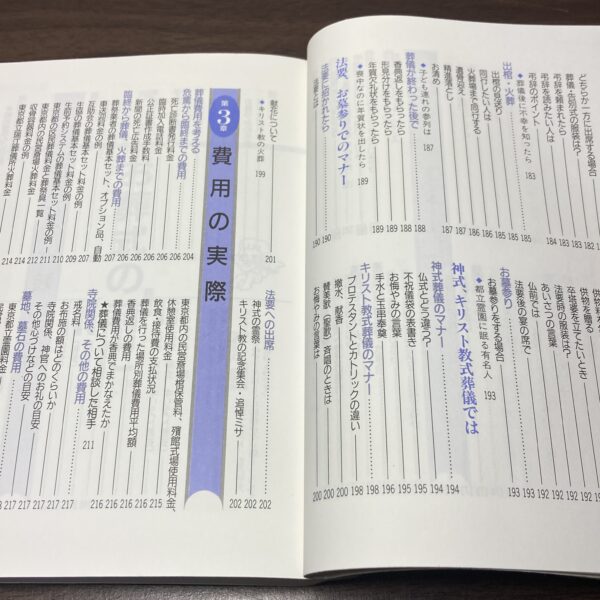 どちらか一方に出席する場合
葬儀・告別式の服装は?
弔辞を頼まれたら
弔辞を読みたい人は
弔辞のポイント
◆葬儀後に不幸を知ったら 183
出棺・火葬
出棺の見送り
同行したい人は
火葬場まで同行する
遺骨迎え
精進落とし
お清め
◆子ども連れの参列は 187
葬儀が終わった後で
香典返しをもらったら
形見分けをもらったら
年賀欠礼状をもらったら
喪中なのに年賀状を出したら 189
法要、お墓参りでのマナー
法要に招かれたら
法要とは
182 182 183 184
185 185 185 186 186 187 187
188 188 188 189
190 190
供物を贈る
卒塔婆を立てたいとき
法要時の服装は?
あいさつの言葉
仏前では
法要後の宴の席で
お墓参り
お墓参りをする場合
◆都立霊園に眠る有名人 193
神式、キリスト教式葬儀では
神式葬儀のマナー
仏式とどう違う?
不祝儀袋の表書き
お悔やみの言葉
手水と玉串奉奠
キリスト教式葬儀のマナー
プロテスタントとカトリックの違い
撒水、献香
賛美歌(聖歌)斉唱のときは
お悔やみの言葉は
192 192 192 192 193
193
194 194 195 195 196
198 198 200 200 200
献花について
◆キリスト教の火葬 199
201
法要への出席
神式の霊祭
キリスト教の記念集会・追悼ミサ
202 202 202
第3章
費用の実際
葬儀費用を考える
危篤から臨終までの費用
死亡診断書発行料金
臨時加入電話料金
公正証書作成手数料
新聞の死亡広告料金
臨終から葬儀、火葬までの費用
車送迎料金の例
葬祭業者の葬儀基本セット、オプション品、自動
互助会の葬儀基本セット料金の例
生協の葬儀基本セット料金の例
生前予約システムの葬儀基本セット料金の例
東京都内の民営斎場火葬料金
収骨容器料金の例と葬祭具一覧
東京都立瑞江葬儀所火葬料金
204 206 206 206 206 206 207
207 209 210 211 212 212 214 214
東京都内の民営斎場棺保管料、殯館式場使用料金、
休憩室使用料金
飲食・接待費の支払状況
葬儀を行った場所別葬儀費用平均額
香典返しの費用
葬儀費用が香典でまかなえたか
★葬儀について相談した相手 211
寺院関係、その他の費用
戒名料
お布施の額はどのくらいか
寺院関係、神官へのお礼の目安
その他心づけなどの目安
墓地、墓石の費用
東京都立霊園料金
215 215 215 216 216 216
216 217 217 217 217